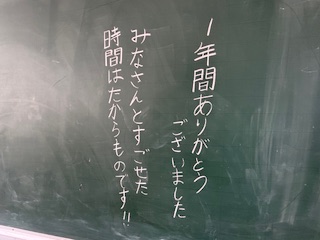 1年間ありがとう
ございました
みなさんとすごせた
時間はたからものです!!